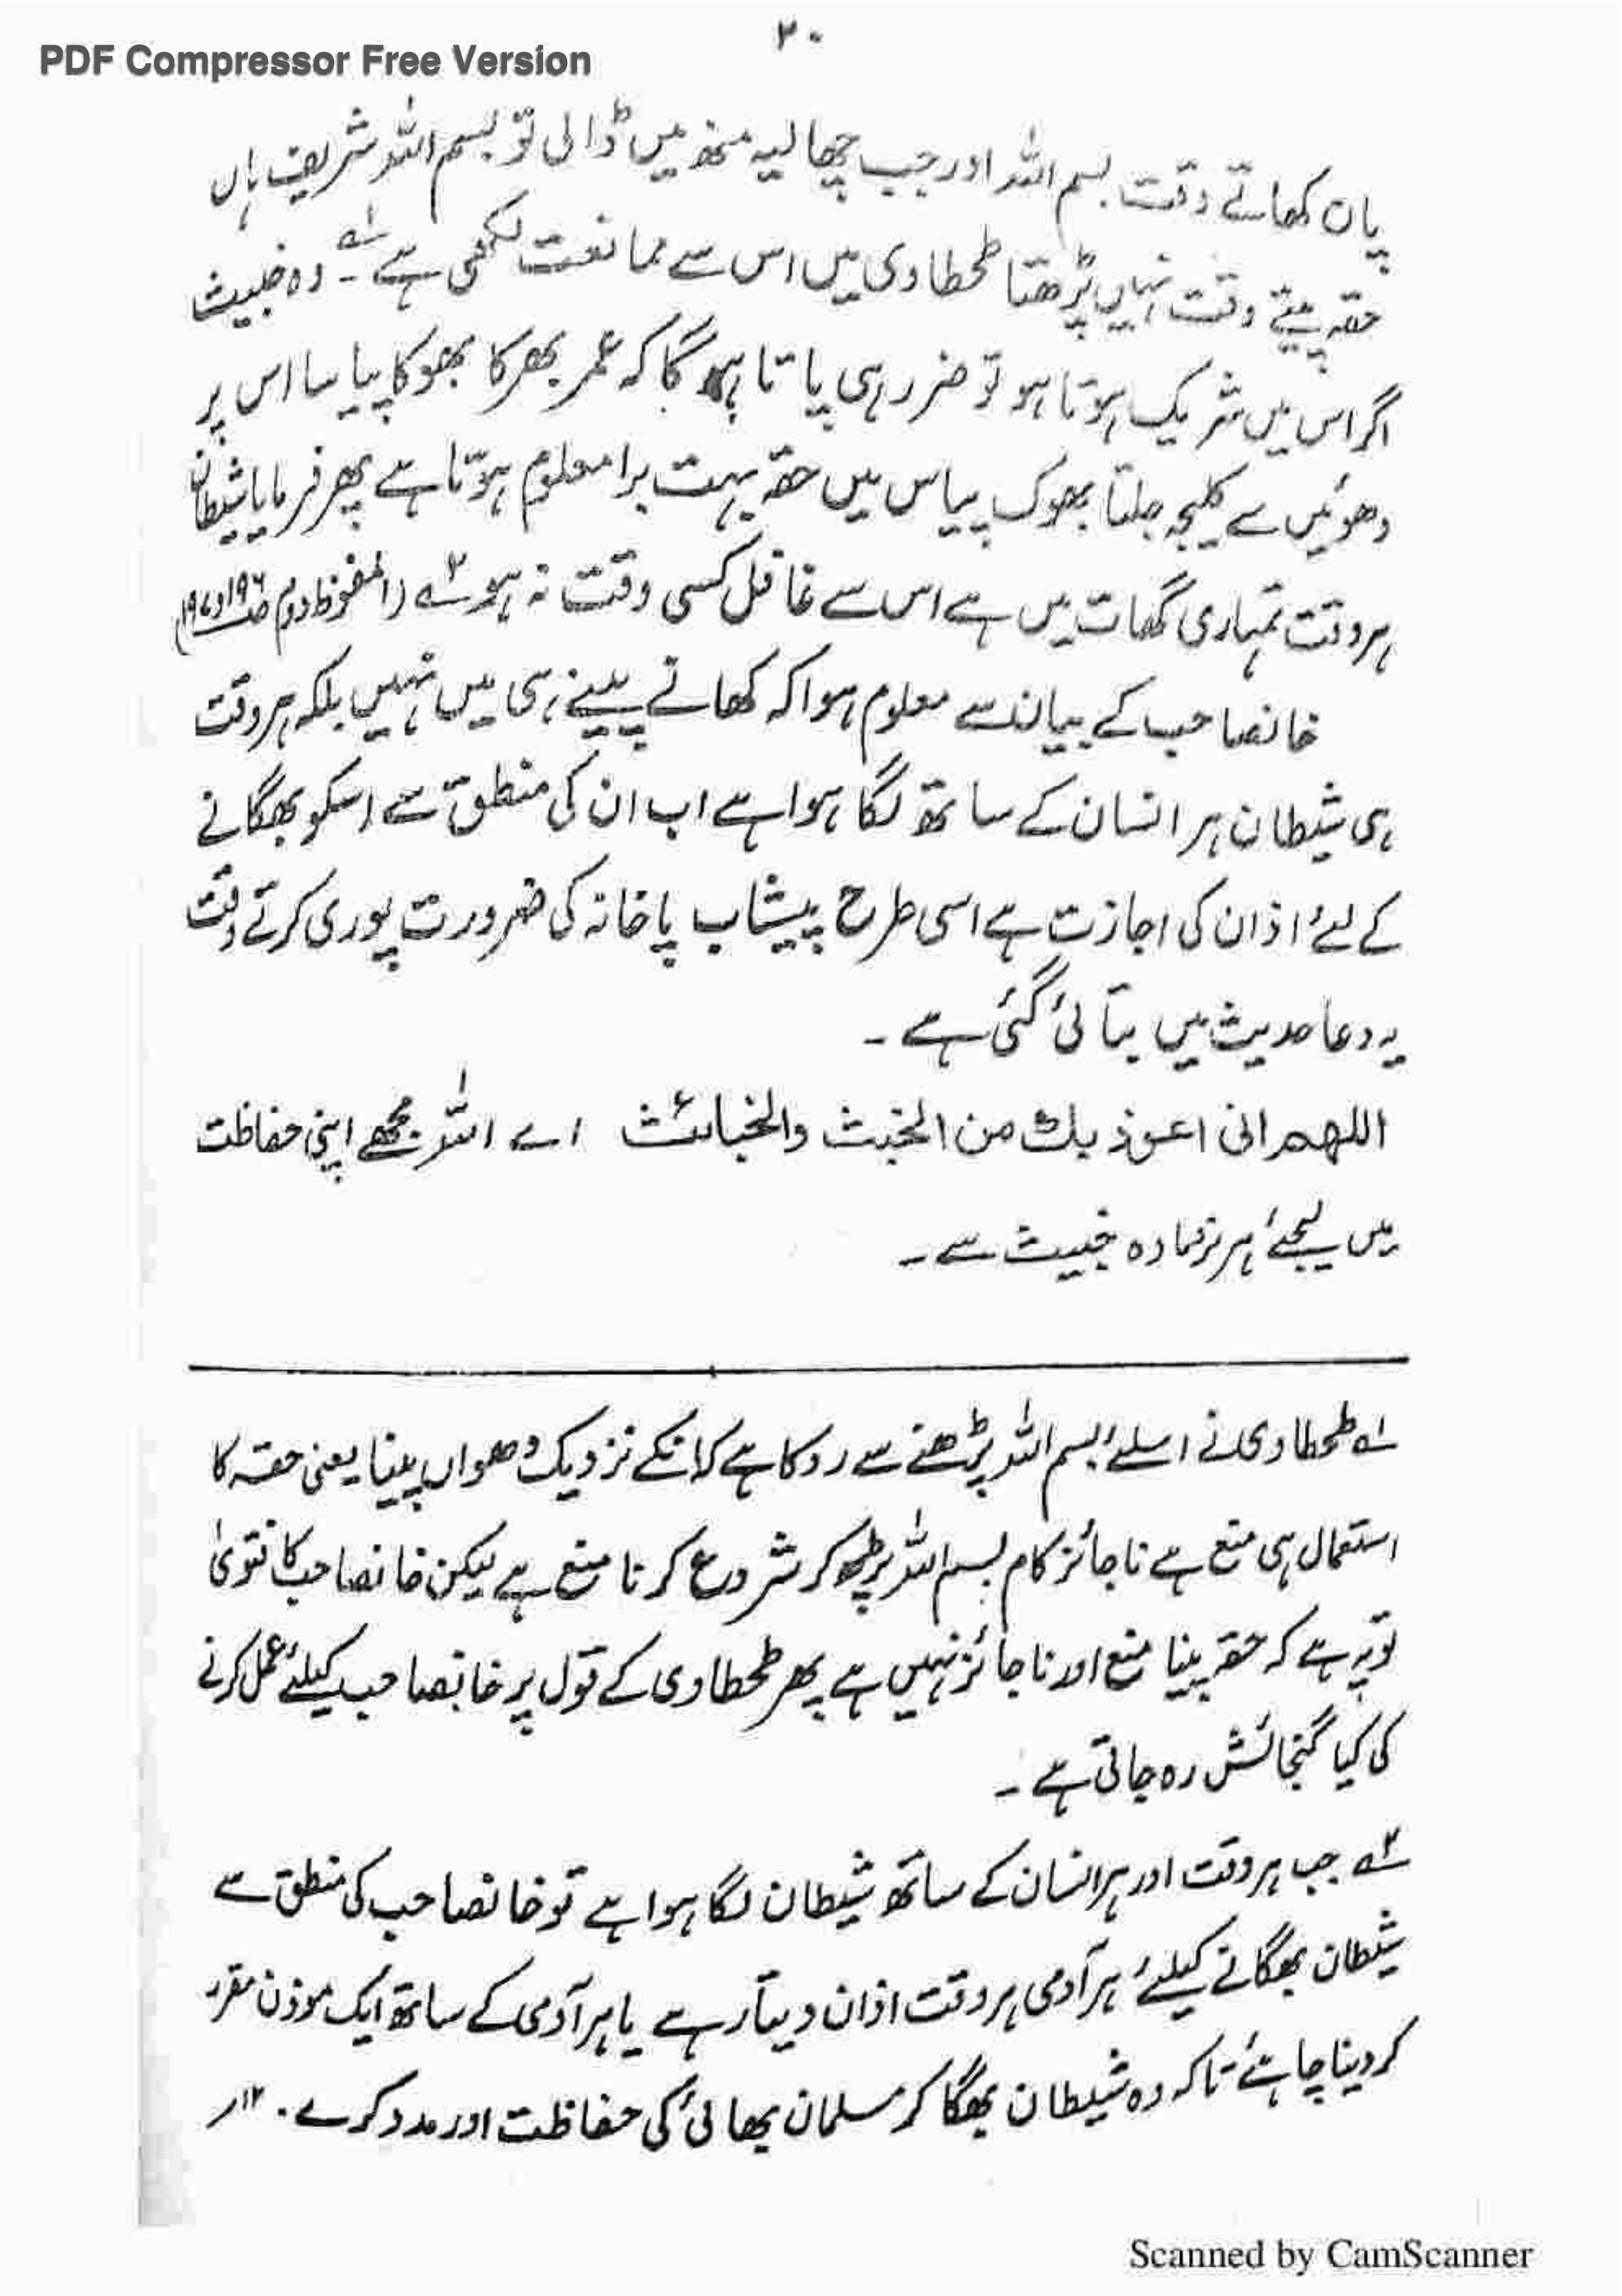 ۲۰
PDF Compressor Free Version
پان کھاتے وقت بسم اللہ اور جب چھالیہ منھ میں ڈالی تو بسم اللہ شریف ہاں
حقہ پیتے وقت نہیں پڑھتا طحطاوی میں اس سے ممانعت لکھی ہے ۱؎ ۔ وہ خبیث
اگر اس میں شریک ہوتا ہو تو ضرر ہی پاتا ہوگا کہ عمر بھر کا بھوکا پیاسا اس پر
دھوئیں سے کلیجہ جلتا بھوک پیاس میں حقہ بہت برا معلوم ہوتا ہے پھر فرمایا شیطان
ہر وقت تمہاری گھات میں ہے اس سے غافل کسی وقت نہ ہو ۲؎ (الملفوظ دوم ص۱۹۶و۱۹۷)
خانصاحب کے بیان سے معلوم ہوا کہ کھانے پینے ہی میں نہیں بلکہ ہر وقت
ہی شیطان ہر انسان کے ساتھ لگا ہوا ہے اب ان کی منطق سے اسکو بھگانے
کے لئے اذان کی اجازت ہے اسی طرح پیشاب پاخانہ کی ضرورت پوری کرتے وقت
یہ دعا حدیث میں بتائی گئی ہے ۔
اللهم انی اعوذ بك من الخبث والخبائث اے اللہ مجھے اپنی حفاظت
میں لیجئے ہر نر و مادہ خبیث سے ۔
۱؎ طحطاوی نے اسلئے بسم اللہ پڑھنے سے روکا ہے کہ انکے نزدیک دھواں پینا یعنی حقہ کا
استعمال ہی منع ہے ناجائز کام بسم اللہ پڑھ کر شروع کرنا منع ہے لیکن خانصاحب کا فتویٰ
تو یہ ہے کہ حقہ پینا منع اور ناجائز نہیں ہے پھر طحطاوی کے قول پر خانصاحب کیلئے عمل کرنے
کی کیا گنجائش رہ جاتی ہے ۔
۲؎ جب ہر وقت اور ہر انسان کے ساتھ شیطان لگا ہوا ہے تو خانصاحب کی منطق سے
شیطان بھگانے کیلئے ہر آدمی ہر وقت اذان دیتا رہے یا ہر آدمی کے ساتھ ایک موذن مقرر
کر دینا چاہئے تاکہ وہ شیطان بھگا کر مسلمان بھائی کی حفاظت اور مدد کرے ۔ ۱۲؍
Scanned by CamScanner